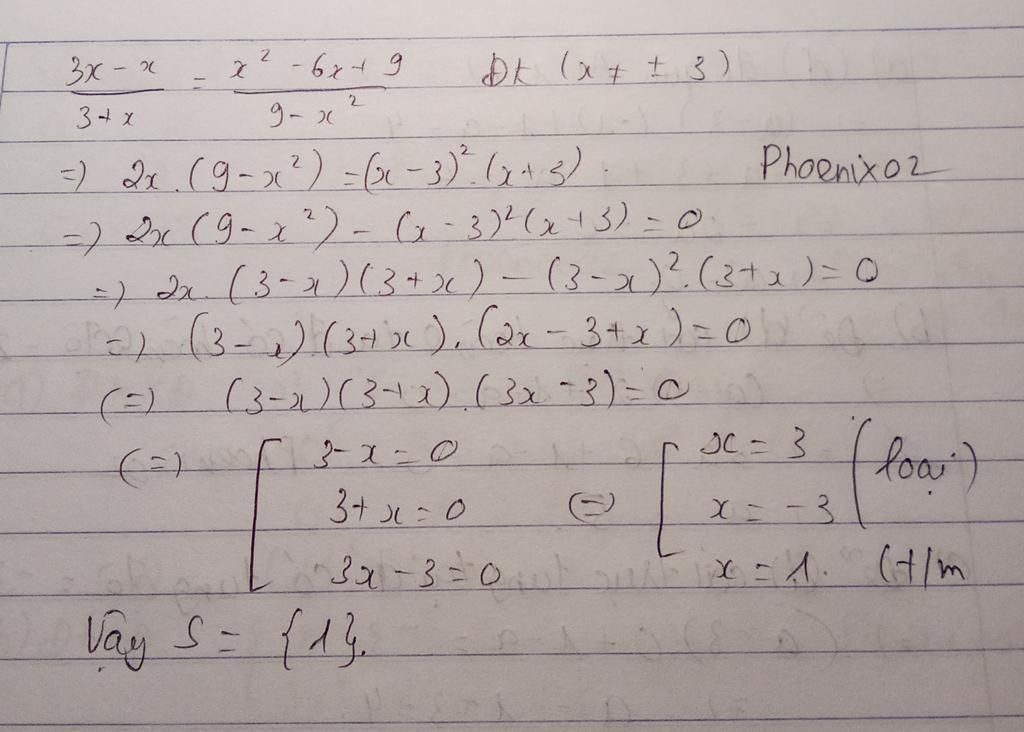 (3x - x)/(3 + x) = (x² - 6x + 9)/(9 - x²) Đk (x ≠ ± 3)
=) 2x.(9 - x²) = (x - 3)².(x + 3). Phoenix02
=) 2x (9 - x²) - (x - 3)²(x + 3) = 0
=) 2x.(3 - x)(3 + x) - (3 - x)².(3 + x) = 0
=) (3 - x)(3 + x).(2x - 3 + x) = 0
(=) (3 - x)(3 + x).(3x - 3) = 0
(=) [ 3 - x = 0 (=) [ x = 3 (loại)
3 + x = 0 x = -3
3x - 3 = 0 x = 1. (t/m
Vậy S = {1}.